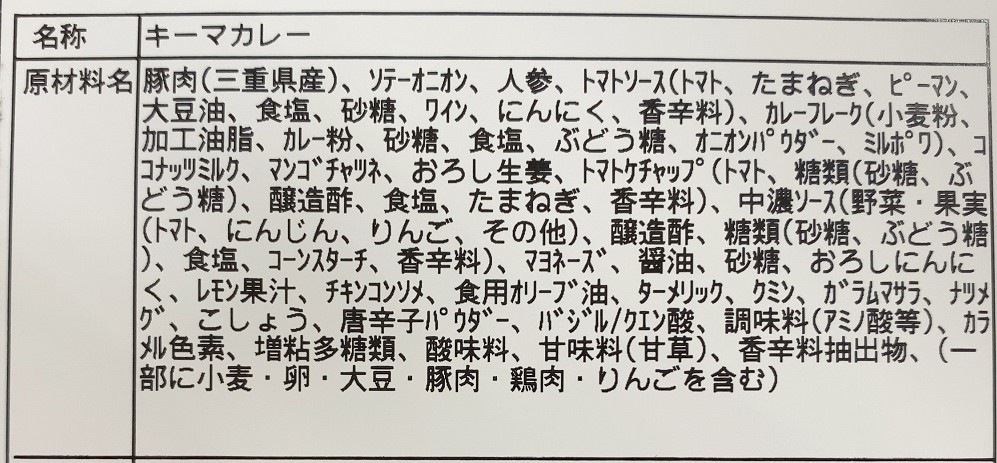 名称 キーマカレー
原材料名 豚肉(三重県産)、ｿﾃｰｵﾆｵﾝ、人参、ﾄﾏﾄｿｰｽ(ﾄﾏﾄ、たまねぎ、ﾋﾟｰﾏﾝ、
大豆油、食塩、砂糖、ﾜｲﾝ、にんにく、香辛料)、ｶﾚｰﾌﾚｰｸ(小麦粉、
加工油脂、ｶﾚｰ粉、砂糖、食塩、ぶどう糖、ｵﾆｵﾝﾊﾟｳﾀﾞｰ、ﾐﾙﾎﾟﾜ)、ｺ
ｺﾅｯﾂﾐﾙｸ、ﾏﾝｺﾞﾁｬﾂﾈ、おろし生姜、ﾄﾏﾄｹﾁｬｯﾌﾟ(ﾄﾏﾄ、糖類(砂糖、ぶ
どう糖)、醸造酢、食塩、たまねぎ、香辛料)、中濃ｿｰｽ(野菜・果実
(ﾄﾏﾄ、にんじん、りんご、その他)、醸造酢、糖類(砂糖、ぶどう糖
)、食塩、ｺｰﾝｽﾀｰﾁ、香辛料)、ﾏﾖﾈｰｽﾞ、醤油、砂糖、おろしにんに
く、ﾚﾓﾝ果汁、ﾁｷﾝｺﾝｿﾒ、食用ｵﾘｰﾌﾞ油、ﾀｰﾒﾘｯｸ、ｸﾐﾝ、ｶﾞﾗﾑﾏｻﾗ、ﾅﾂﾒ
ｸﾞ、こしょう、唐辛子ﾊﾟｳﾀﾞｰ、ﾊﾞｼﾞﾙ/ｸｴﾝ酸、調味料(ｱﾐﾉ酸等)、ｶﾗ
ﾒﾙ色素、増粘多糖類、酸味料、甘味料(甘草)、香辛料抽出物、(一
部に小麦・卵・大豆・豚肉・鶏肉・りんごを含む)